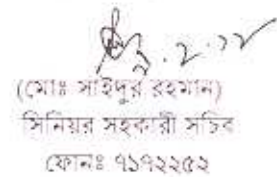 ২.২.১২
(মোঃ সাইদুর রহমান)
সিনিয়র সহকারী সচিব
ফোনঃ ৭১৭২২৫২